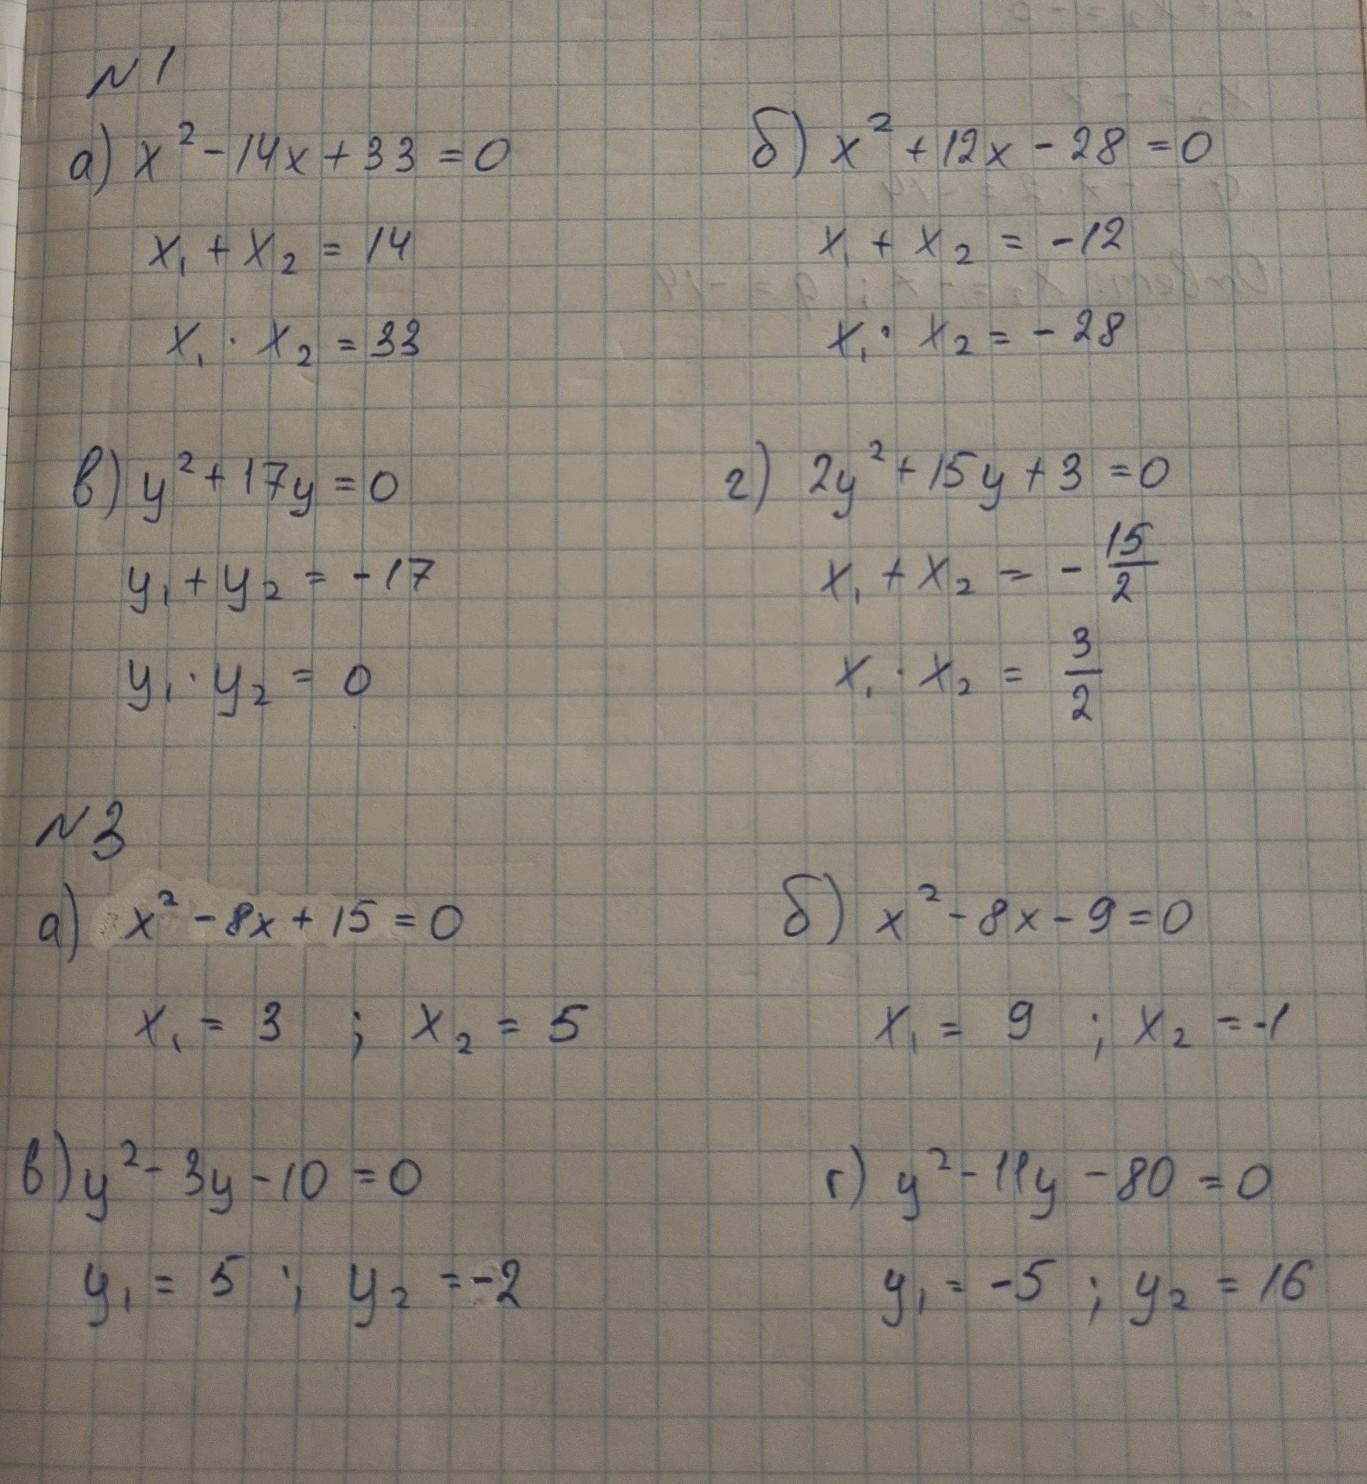 N1
а) x² - 14x + 33 = 0
x₁ + x₂ = 14
x₁ · x₂ = 33
б) x² + 12x - 28 = 0
x₁ + x₂ = -12
x₁ · x₂ = -28
в) y² + 17y = 0
y₁ + y₂ = -17
y₁ · y₂ = 0
г) 2y² + 15y + 3 = 0
x₁ + x₂ = - 15/2
x₁ · x₂ = 3/2
N3
а) x² - 8x + 15 = 0
x₁ = 3 ; x₂ = 5
б) x² - 8x - 9 = 0
x₁ = 9 ; x₂ = -1
в) y² - 3y - 10 = 0
y₁ = 5 ; y₂ = -2
г) y² - 11y - 80 = 0
y₁ = -5 ; y₂ = 16